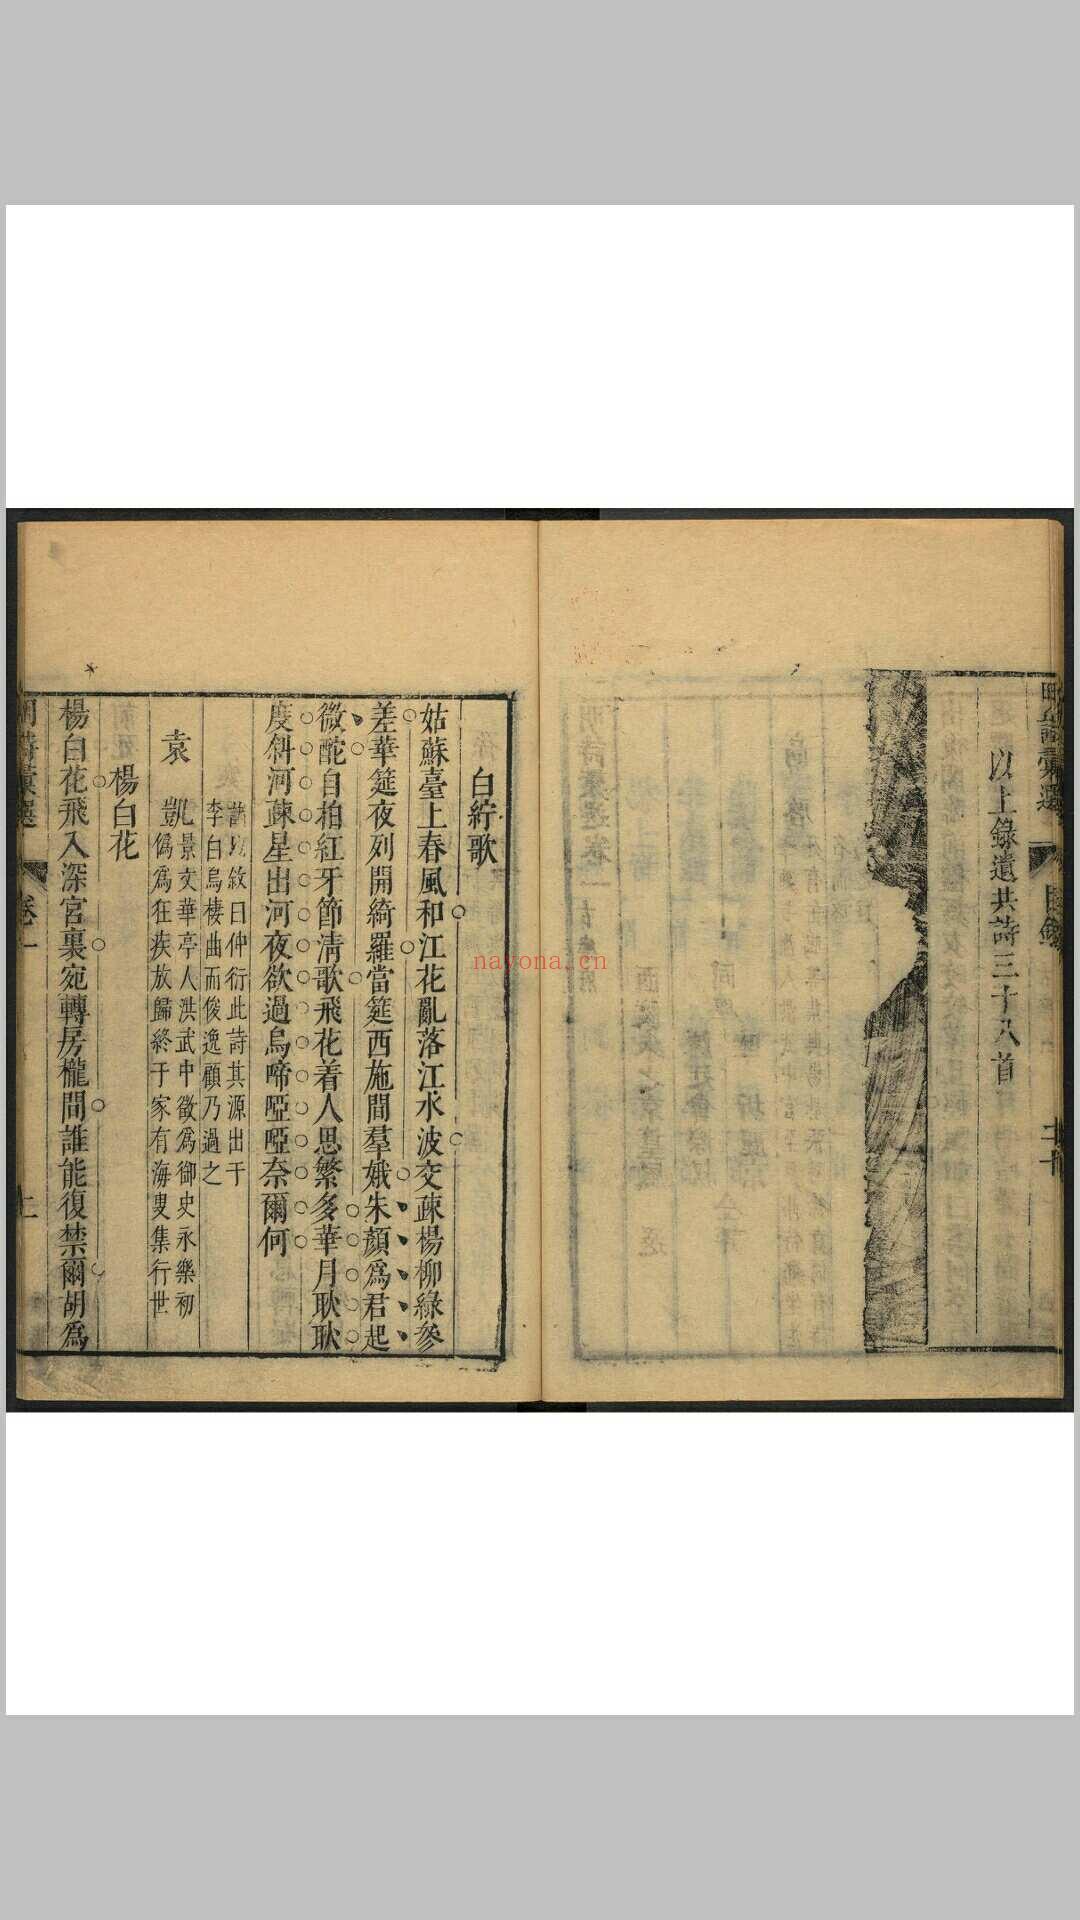 以上錄遺共詩三十八首
白紵歌
姑蘇臺上春風和江花亂落江水波交疎楊柳綠參
差華筵夜列開綺羅當筵西施間羣娥朱顏爲君起
微酡自柏紅牙節淸歌飛花着人思繁多華月耿耿
度斜河疎星出河夜欲過烏啼啞啞奈爾何
敘曰仲衍此詩其源出于
李白烏棲曲而俊逸顧乃過之
袁
凱景文華亭人洪武中徵爲御史永樂初
僞爲狂疾放歸終于家有海叟集行世
楊白花
楊白花飛入深宮裏宛轉房櫳間誰能復禁爾胡爲
nayona.cn